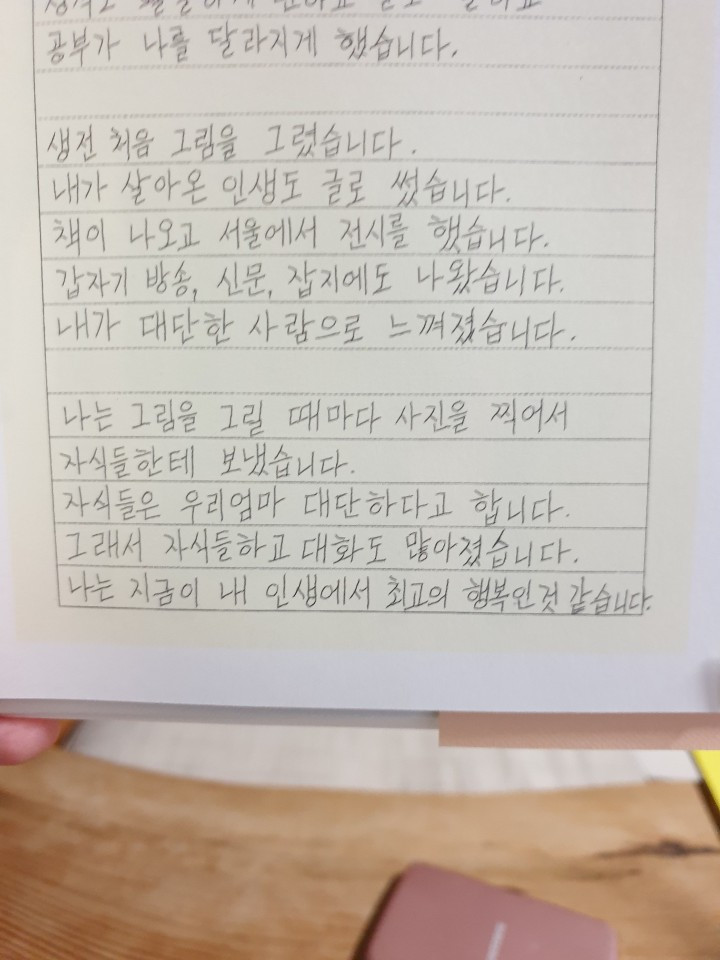 공부가 나를 달라지게 했습니다.
생전 처음 그림을 그렸습니다.
내가 살아온 인생도 글로 썼습니다.
책이 나오고 서울에서 전시를 했습니다.
갑자기 방송, 신문, 잡지에도 나왔습니다.
내가 대단한 사람으로 느껴졌습니다.
나는 그림을 그릴 때마다 사진을 찍어서
자식들한테 보냈습니다.
자식들은 우리엄마 대단하다고 합니다.
그래서 자식들하고 대화도 많아졌습니다.
나는 지금이 내 인생에서 최고의 행복인것 같습니다.